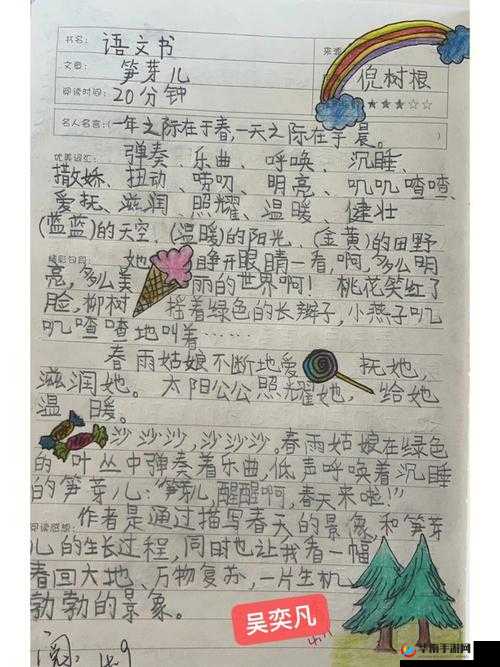 书名: 语文书
来源
文章: 笋芽儿
倪树根
阅读时间: 20分钟
★★★☆☆
名人名言:(一年之际在于春,一天之际在于晨。
优美词汇: 弹奏、乐曲、呼唤、沉睡、
撒娇、扭动、唠叨、明亮、叽叽喳喳、
爱抚、滋润、照耀、温暖、健壮
(蓝蓝)的天空、(温暖)的阳光、(金黄)的田野
精彩句段: 她睁开眼睛一看,啊,多么明
亮,多么美丽的世界啊!桃花笑红了
脸,柳树摇着绿色的长辫子,小燕子叽
叽喳喳地叫着……
春雨姑娘不断地爱抚她,
滋润她。太阳公公照耀她,给她
温暖。
沙沙沙,沙沙沙。春雨姑娘在绿色
的叶丛中弹奏着乐曲,低声呼唤着沉睡
的笋芽儿:“笋芽儿,醒醒啊,春天来啦!”
阅读感想: 作者是通过描写春天的景象和笋芽
儿的生长过程,同时也让我看一幅
春回大地、万物复苏,一片生机
勃勃的景象。
吴奕凡
阅
华南手游网